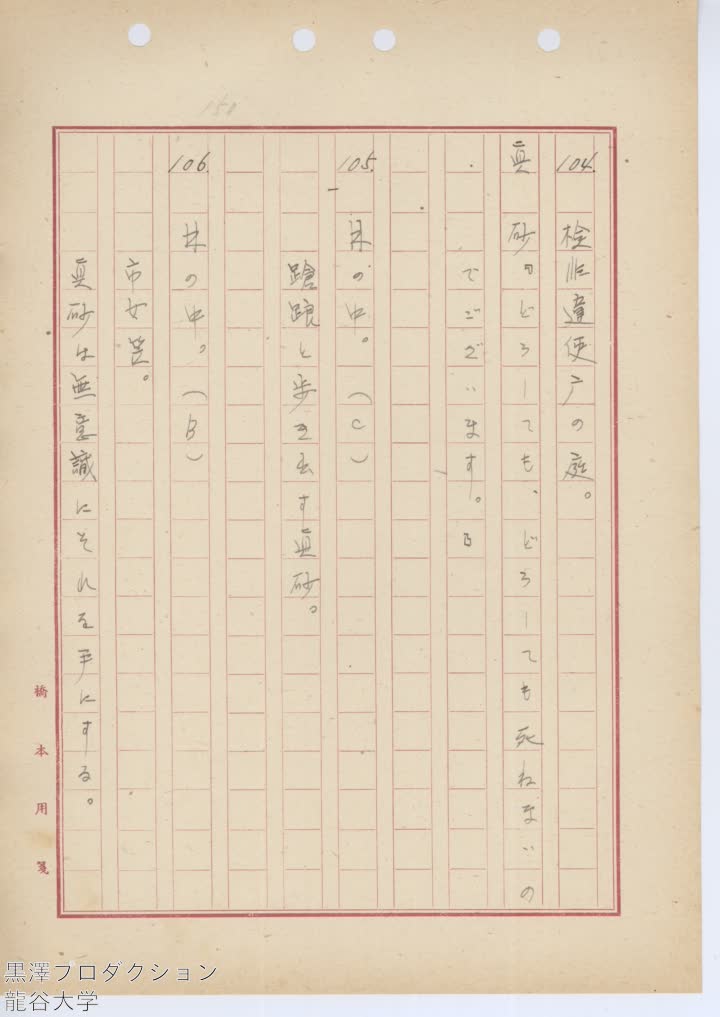 150
104. 検非違使庁の庭。
眞 砂「どうしても、どうしても死ねないの
でございます。」
105. 林の中。(C)
蹌踉と歩き出す眞砂。
106. 林の中。(B)
市女笠。
眞砂は無意識にそれを手にする。
橋本用箋
黒澤プロダクション
龍谷大学